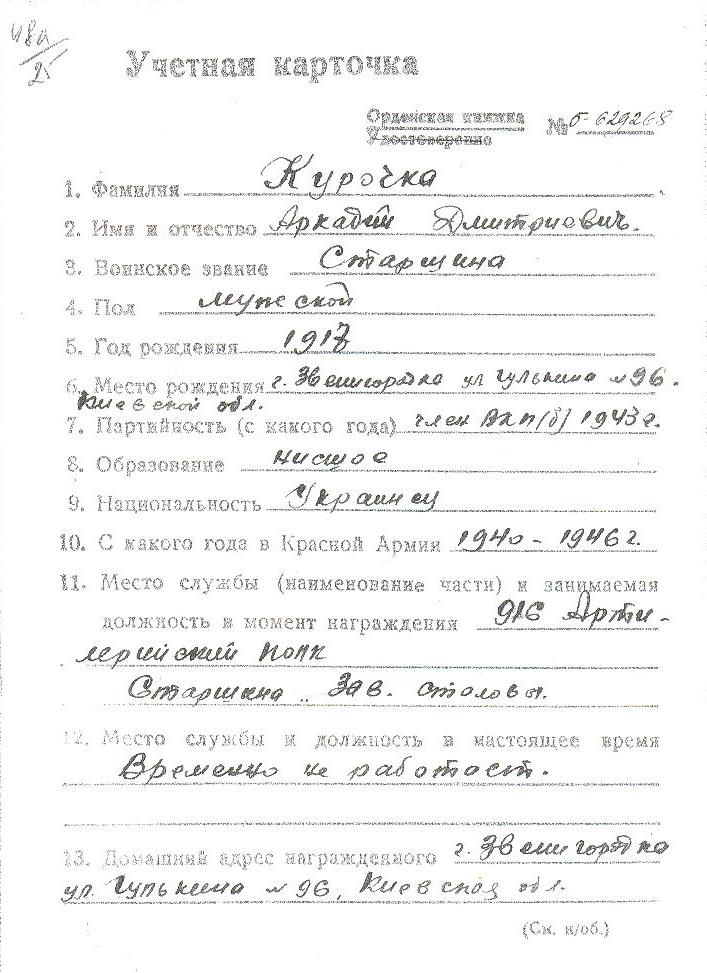 48а
25
Учетная карточка
Орденская книжка № Б-629268
Удостоверение
1. Фамилия Курочка
2. Имя и отчество Аркадий Дмитриевич.
3. Воинское звание Старшина
4. Пол мужской
5. Год рождения 1917
6. Место рождения г. Звенигородка ул Гулькина №96.
Киевской обл.
7. Партийность (с какого года) член ВКП(б) 1943 г.
8. Образование нисшое
9. Национальность Украинец
10. С какого года в Красной Армии 1940 - 1946 г.
11. Место службы (наименование части) и занимаемая
должность в момент награждения 916 Арти-
лерийский полк
Старшина .. Зав. столовы.
12. Место службы и должность в настоящее время
Временно не работает.
13. Домашний адрес награжденного г. Звенигородка
ул. Гулькина №96, Киевская обл.
(См. н/об.)